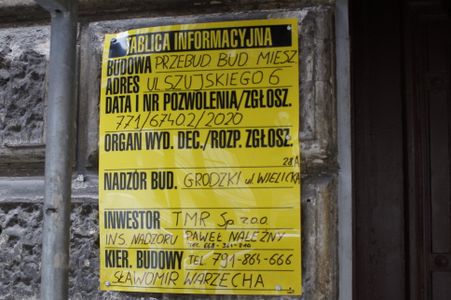 TABLICA INFORMACYJNA
BUDOWA PRZEBUD BUD MIESZ
ADRES UL SZUJSKIEGO 6
DATA I NR POZWOLENIA/ZGŁOSZ.
771/67402/2020
ORGAN WYD. DEC./ROZP. ZGŁOSZ.
28A
NADZÓR BUD. GRODZKI ul. WIELICKA
INWESTOR TMR Sp z o.o.
INS. NADZORU PAWEŁ NALEŻNY
TEL 668-
KIER. BUDOWY TEL 791-864-666
SŁAWOMIR WARZECHA